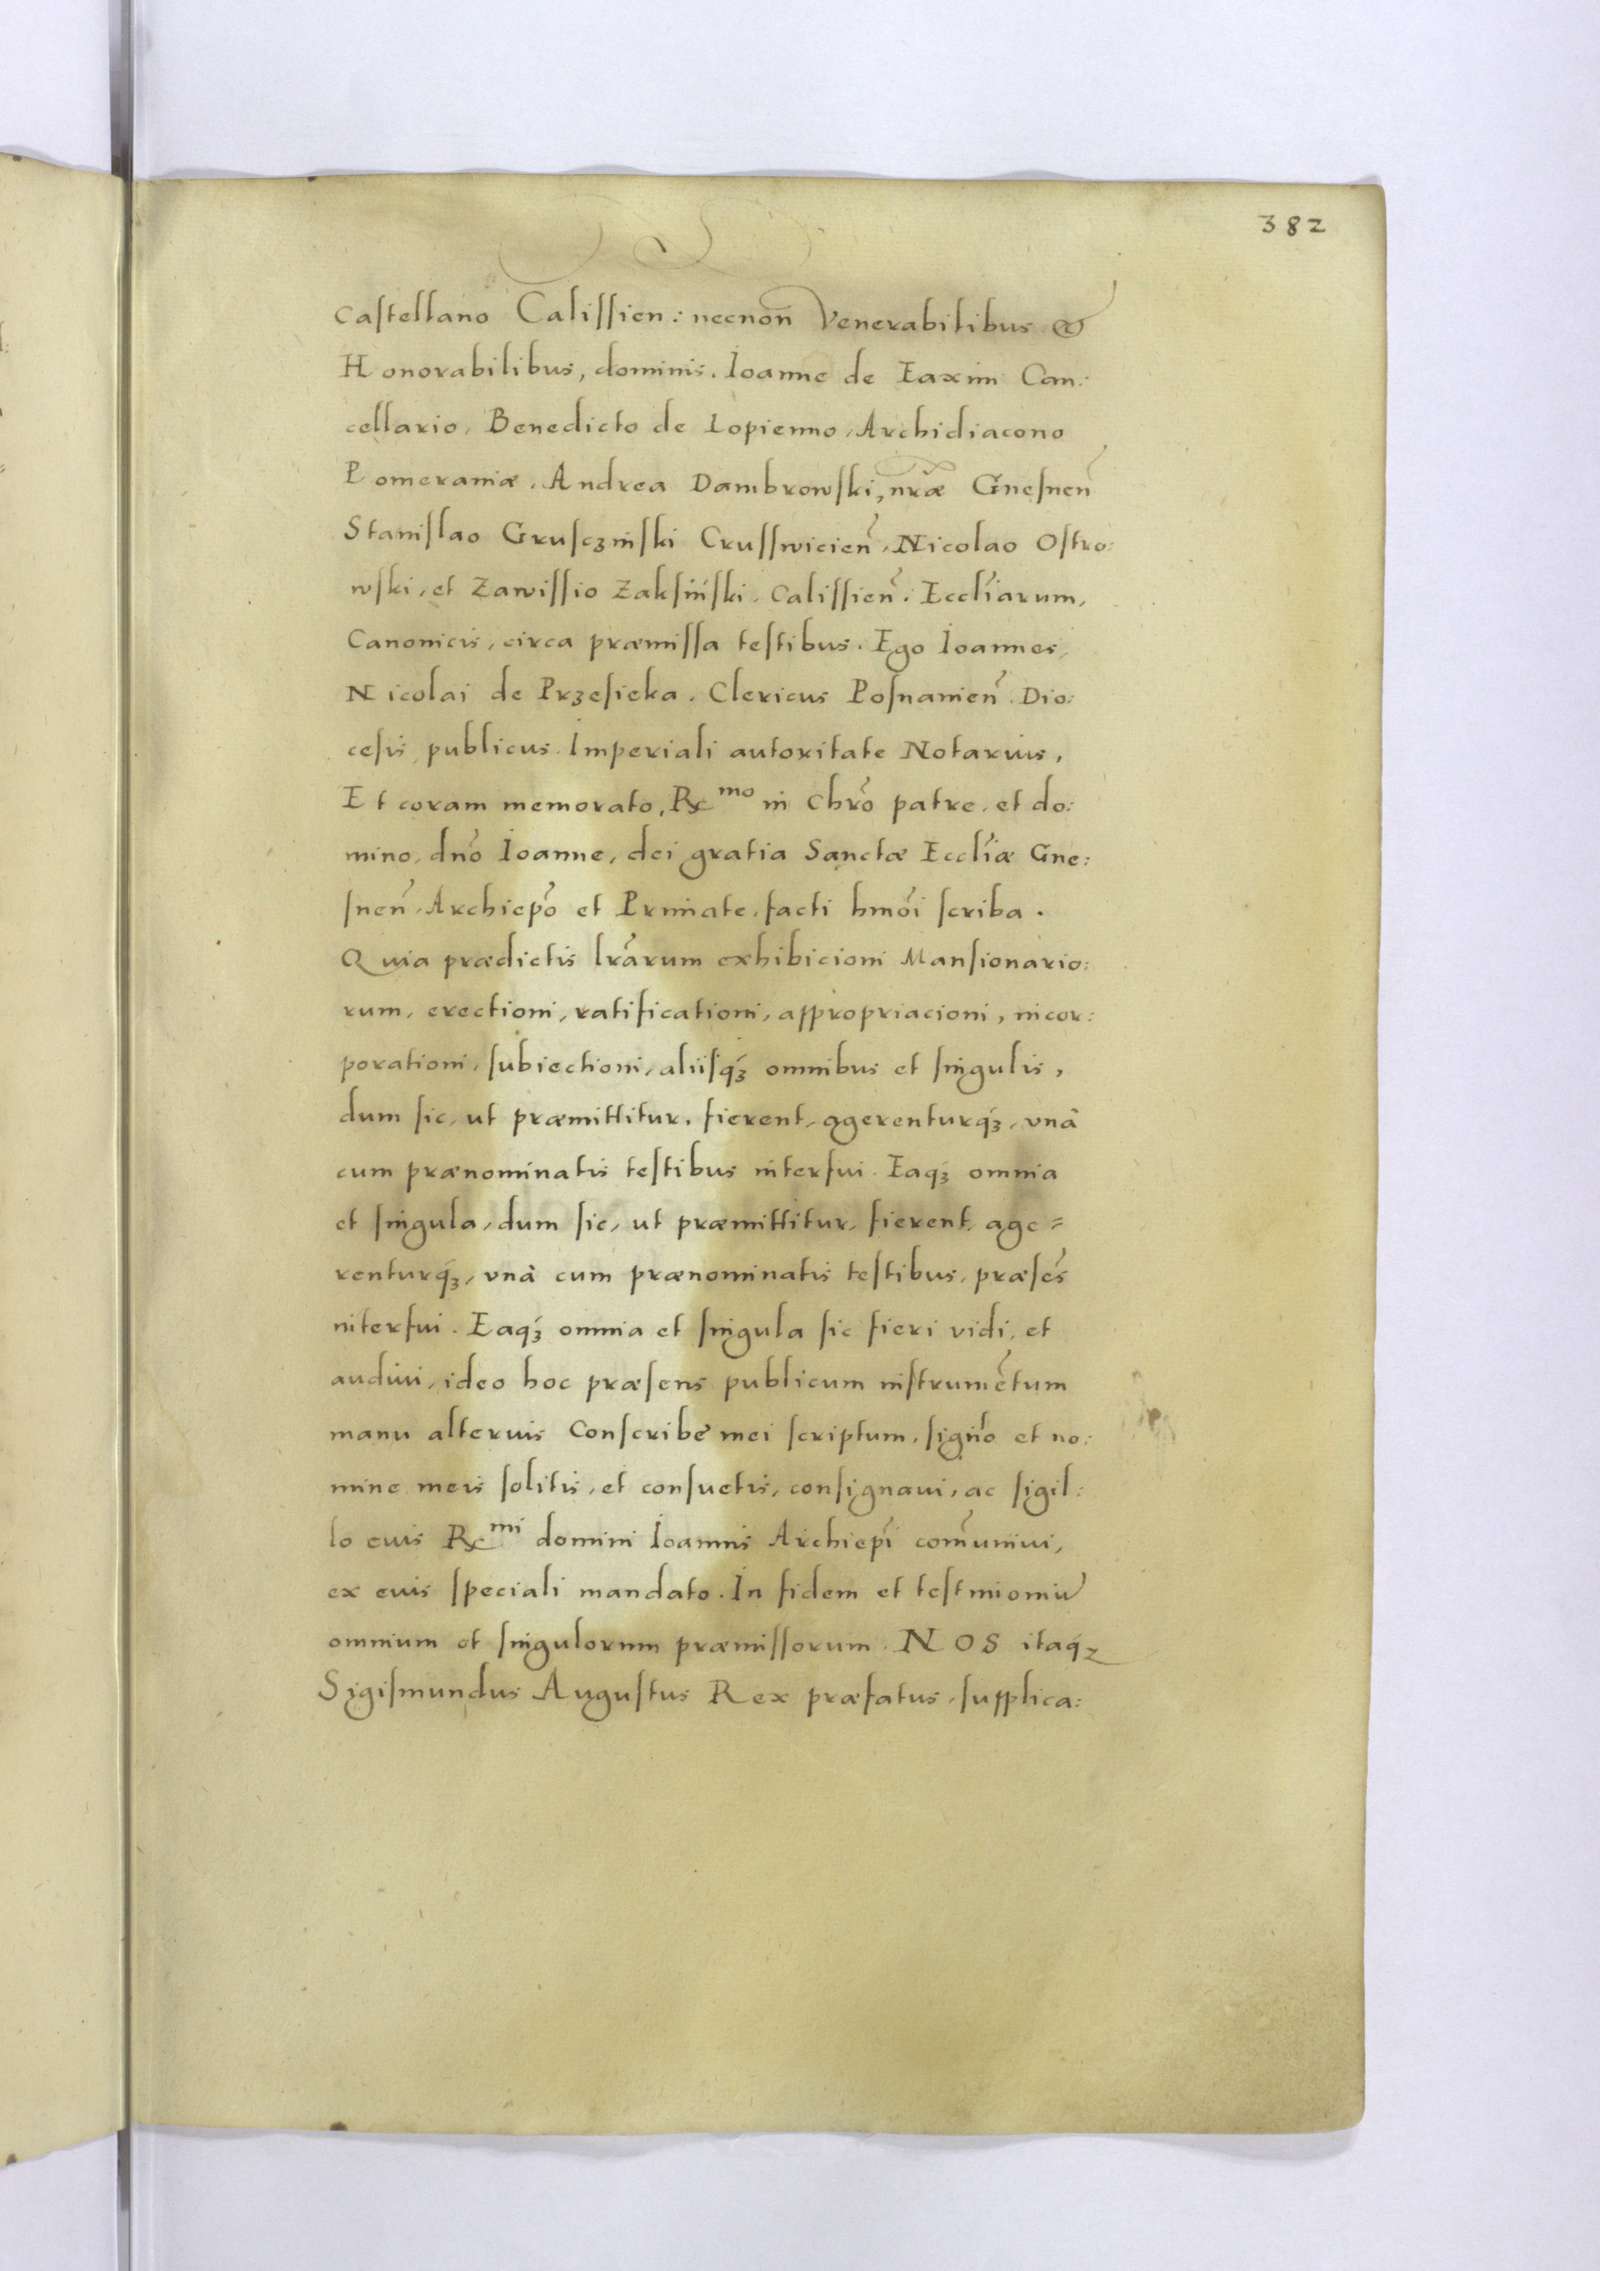 382
Castellano Calissien: necnon Venerabilibus &
Honorabilibus, dominis. Ioanne de Iaxini Can:
cellario, Benedicto de Lopienno, Archidiacono
Pomeraniæ. Andrea Dambrowski, nr̃æ Gnesnen̄
Stanislao Grusczinski Crusswicien̄, Nicolao Ostro:
wski, et Zawissio Zaksinski. Calissien̄. Eccl̄iarum,
Canonicis, circa præmissa testibus. Ego Ioannes,
Nicolai de Przesieka. Clericus Posnanien̄. Dio:
cesis publicus Imperiali autoritate Notarius,
Et coram memorato, Rᵐᵒ in Chr̄o patre, et do:
mino, dn̄o Ioanne, dei gratia Sanctæ Eccl̄iæ Gne:
snen̄. Archiep̄o et Primate, facti hmōi scriba.
Quia prædictis lr̄arum exhibicioni Mansionario:
rum, erectioni, ratificationi, appropriacioni, incor:
porationi, subiectioni, aliisq́ꝫ omnibus et singulis,
dum sic, ut præmittitur, fierent, agerenturq́ꝫ, vnà
cum prænominatis testibus interfui. Eaq́ꝫ omnia
et singula, dum sic, ut præmittitur, fierent, age=
renturq́ꝫ, vnà cum prænominatis testibus, præsēs
interfui. Eaq́ꝫ omnia et singula sic fieri vidi, et
audiui, ideo hoc præsens publicum instrumētum
manu alterius Conscribē mei scriptum, sign̄o et no:
mine meis solitis, et consuetis, consignaui, ac sigil:
lo eius Rᵐⁱ domini Ioannis Archiep̄i com̄uniui,
ex eius speciali mandato. In fidem et testimoniū
omnium et singulorum præmissorum. NOS itaq́ꝫ
Sigismundus Augustus Rex præfatus, supplica: